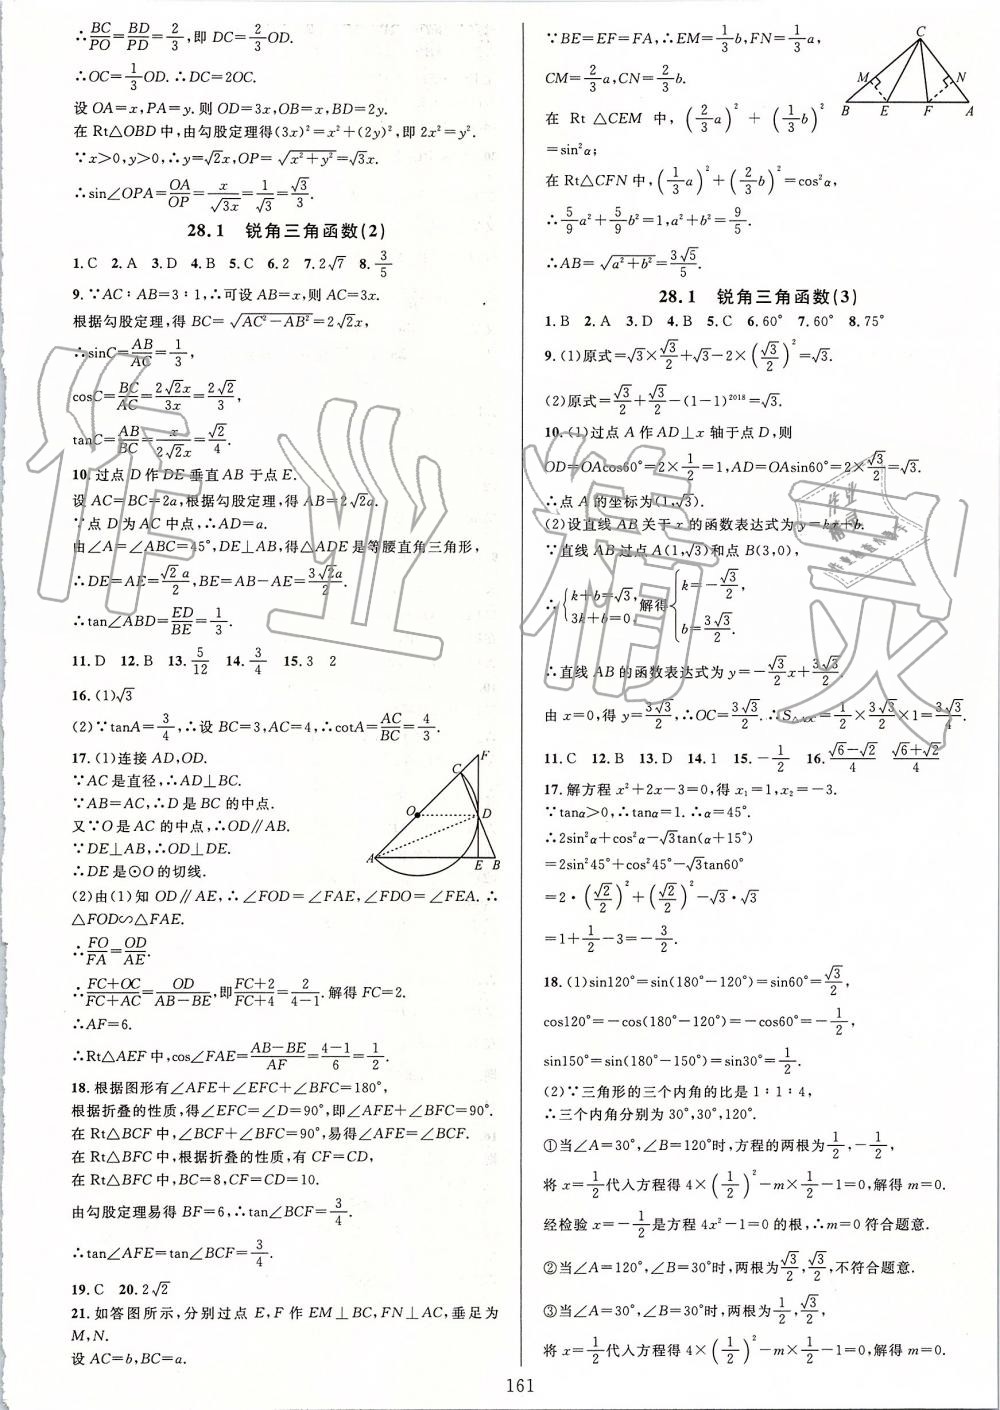 ∴BC/PO=BD/PD=2/3,即 DC=2/3OD.
∴OC=1/3OD.∴DC=2OC.
设 OA=x,PA=y.则 OD=3x,OB=x,BD=2y.
在 Rt△OBD 中,由勾股定理得(3x)²=x²+(2y)²,即 2x²=y².
∵x>0,y>0,∴y=√2x,OP=√(x²+y²)=√3x.
∴sin∠OPA=OA/OP=x/√3x=1/√3=√3/3.
28.1 锐角三角函数(2)
1.C 2.A 3.D 4.B 5.C 6.2 7.2√7 8.3/5
9.∵AC∶AB=3∶1,∴可设 AB=x,则 AC=3x.
根据勾股定理,得 BC=√(AC²-AB²)=2√2x,
∴sinC=AB/AC=1/3,
cosC=BC/AC=2√2x/3x=2√2/3,
tanC=AB/BC=x/2√2x=√2/4.
10.过点 D 作 DE 垂直 AB 于点 E.
设 AC=BC=2a,根据勾股定理,得 AB=2√2a.
∵点 D 为 AC 中点,∴AD=a.
由∠A=∠ABC=45°,DE⊥AB,得△ADE 是等腰直角三角形,
∴DE=AE=√2a/2,BE=AB-AE=3√2a/2.
∴tan∠ABD=ED/BE=1/3.
11.D 12.B 13.5/12 14.3/4 15.3 2
16.(1)√3
(2)∵tanA=3/4,∴设 BC=3,AC=4,∴cotA=AC/BC=4/3.
17.(1)连接 AD,OD.
∵AC 是直径,∴AD⊥BC.
∵AB=AC,∴D 是 BC 的中点.
又∵O 是 AC 的中点,∴OD∥AB.
∵DE⊥AB,∴OD⊥DE.
∴DE 是⊙O 的切线.
F
C
O
D
A
E
B
(2)由(1)知 OD∥AE,∴∠FOD=∠FAE,∠FDO=∠FEA.∴
△FOD∽△FAE.
∴FO/FA=OD/AE.
∴(FC+OC)/(FC+AC)=OD/(AB-BE),即(FC+2)/(FC+4)=2/(4-1).解得 FC=2.
∴AF=6.
∴Rt△AEF 中,cos∠FAE=(AB-BE)/AF=(4-1)/6=1/2.
18.根据图形有∠AFE+∠EFC+∠BFC=180°,
根据折叠的性质,得∠EFC=∠D=90°,即∠AFE+∠BFC=90°.
在 Rt△BCF 中,∠BCF+∠BFC=90°,易得∠AFE=∠BCF.
在 Rt△BFC 中,根据折叠的性质,有 CF=CD,
在 Rt△BFC 中,BC=8,CF=CD=10.
由勾股定理易得 BF=6,∴tan∠BCF=3/4.
∴tan∠AFE=tan∠BCF=3/4.
19.C 20.2√2
21.如答图所示,分别过点 E,F 作 EM⊥BC,FN⊥AC,垂足为
M,N.
设 AC=b,BC=a.
∵BE=EF=FA,∴EM=1/3b,FN=1/3a,
CM=2/3a,CN=2/3b.
在 Rt△CEM 中,(2/3a)²+(1/3b)²
=sin²α;
在 Rt△CFN 中,(1/3a)²+(2/3b)²=cos²α,
∴5/9a²+5/9b²=1,a²+b²=9/5.
∴AB=√(a²+b²)=3√5/5.
C
M
N
B
E
F
A
28.1 锐角三角函数(3)
1.B 2.A 3.D 4.B 5.C 6.60° 7.60° 8.75°
9.(1)原式=√3×√3/2+√3-2×(√3/2)²=√3.
(2)原式=√3/2+√3/2-(1-1)²⁰¹⁸=√3.
10.(1)过点 A 作 AD⊥x 轴于点 D,则
OD=OAcos60°=2×1/2=1,AD=OAsin60°=2×√3/2=√3.
∴点 A 的坐标为(1,√3).
(2)设直线 AB 关于 x 的函数表达式为 y=kx+b.
∵直线 AB 过点 A(1,√3)和点 B(3,0),
∴{k+b=√3,3k+b=0. 解得{k=-√3/2,b=3√3/2.
∴直线 AB 的函数表达式为 y=-√3/2x+3√3/2.
由 x=0,得 y=3√3/2,∴OC=3√3/2.∴S△AOC=1/2×3√3/2×1=3√3/4.
11.C 12.B 13.D 14.1 15.-1/2 16.(√6-√2)/4 (√6+√2)/4
17.解方程 x²+2x-3=0,得 x₁=1,x₂=-3.
∵tanα>0,∴tanα=1.∴α=45°.
∴2sin²α+cos²α-√3tan(α+15°)
=2sin²45°+cos²45°-√3tan60°
=2·(√2/2)²+(√2/2)²-√3·√3
=1+1/2-3=-3/2.
18.(1)sin120°=sin(180°-120°)=sin60°=√3/2,
cos120°=-cos(180°-120°)=-cos60°=-1/2,
sin150°=sin(180°-150°)=sin30°=1/2.
(2)∵三角形的三个内角的比是 1∶1∶4,
∴三个内角分别为 30°,30°,120°.
①当∠A=30°,∠B=120°时,方程的两根为1/2,-1/2,
将 x=1/2代入方程得 4×(1/2)²-m×1/2-1=0,解得 m=0.
经检验 x=-1/2是方程 4x²-1=0 的根,∴m=0 符合题意.
②当∠A=120°,∠B=30°时,两根为√3/2,√3/2,不符合题意.
③当∠A=30°,∠B=30°时,两根为1/2,√3/2,
将 x=1/2代入方程得 4×(1/2)²-m×1/2-1=0,解得 m=0.
161
作业精灵